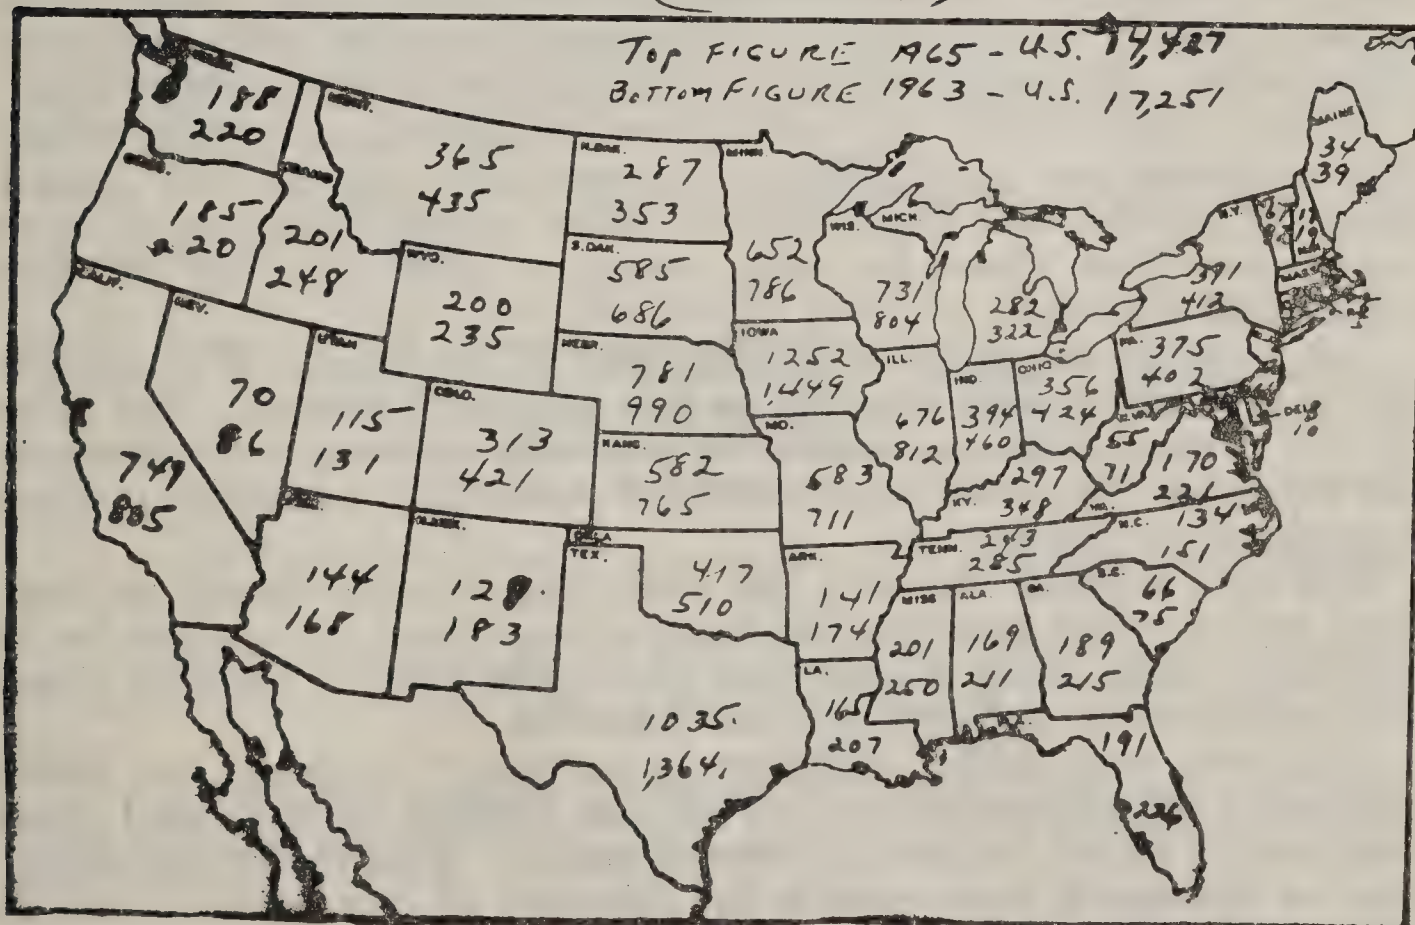 TOP FIGURE 1965 - U.S. 14,427
BOTTOM FIGURE 1963 - U.S. 17,251
188
220
MONT.
365
435
N.DAK.
287
353
MINN.
652
786
MAINE
34
39
185
220
201
248
WYO.
200
235
S.DAK.
585
686
WIS.
731
804
MICH.
282
322
N.Y.
391
412
MASS
CALIF.
749
885
NEV.
70
86
UTAH
115
131
COLO.
313
421
NEBR.
781
990
IOWA
1252
1,449
ILL.
676
812
IND.
394
460
OHIO
356
424
PA.
375
402
DEL 8
10
KANS.
582
765
MO.
583
711
KY.
297
348
W.VA.
55
71
VA.
170
221
144
168
N.MEX.
183
OKLA
417
510
TEX.
1035
1,364
ARK.
141
174
TENN.
243
285
N.C.
134
151
S.C.
66
75
LA.
165
207
MISS
201
250
ALA.
169
211
GA.
189
215
191
226